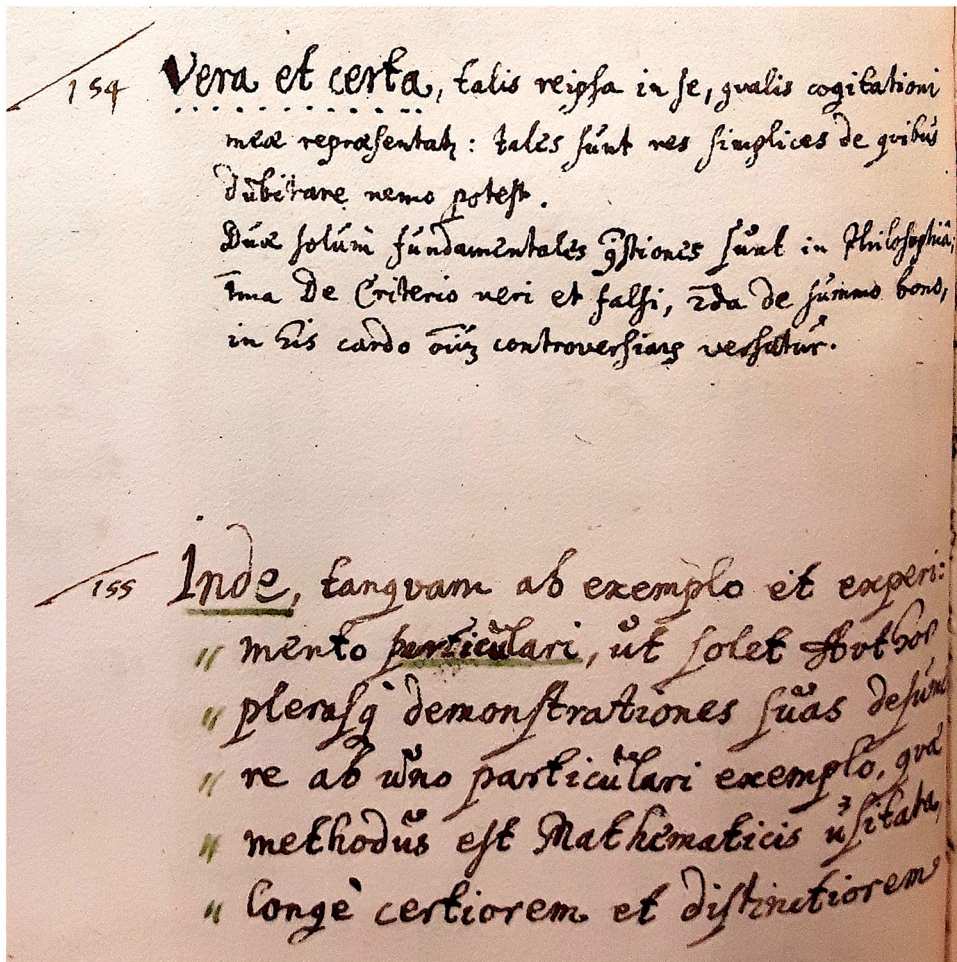 154 Vera et certa, talis reipsa in se, qualis cogitationi
meæ repræsentatꝫ : tales sunt res simplices de qvibus
dubitare nemo potest.
Duæ solùm fundamentales qͦstiones sunt in Philosophiâ,
1ma De Criterio veri et falsi, 2da de summo bono,
in his cardo oı̄uꝫ controversiaꝝ versatur.
155 Inde, tanqvam ab exemplo et experi:
" mento particulari, ut solet Author
" plerasqꝫ demonstrationes suas desum
" re ab uno particulari exemplo, qvæ
" methodus est Mathematicis usitata,
" longè certiorem et distinctiorem